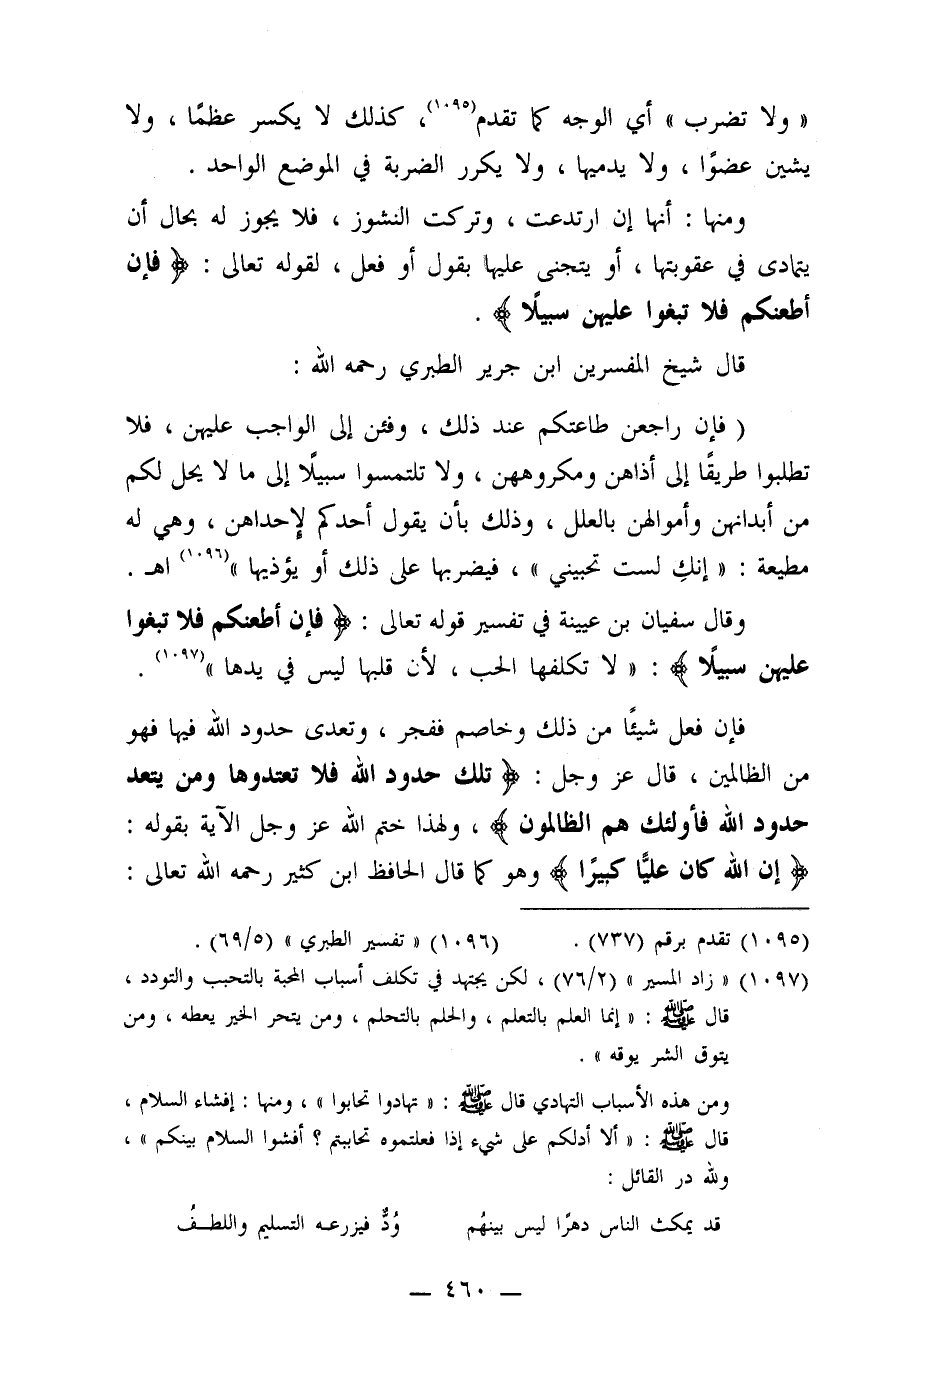 « ولا تضرب » أي الوجه كما تقدم(١٠٩٥)، كذلك لا يكسر عظمًا ، ولا
يشين عضوًا ، ولا يدميها ، ولا يكرر الضربة في الموضع الواحد .
ومنها : أنها إن ارتدعت ، وتركت النشوز ، فلا يجوز له بحال أن
يتمادى في عقوبتها ، أو يتجنى عليها بقول أو فعل ، لقوله تعالى : ﴿ فإن
أطعنكم فلا تبغوا عليهن سبيلًا ﴾ .
قال شيخ المفسرين ابن جرير الطبري رحمه الله :
( فإن راجعن طاعتكم عند ذلك ، وفئن إلى الواجب عليهن ، فلا
تطلبوا طريقًا إلى أذاهن ومكروههن ، ولا تلتمسوا سبيلًا إلى ما لا يحل لكم
من أبدانهن وأموالهن بالعلل ، وذلك بأن يقول أحدكم لإحداهن ، وهي له
مطيعة : « إنكِ لست تحبيني » ، فيضربها على ذلك أو يؤذيها »(١٠٩٦) اهـ .
وقال سفيان بن عيينة في تفسير قوله تعالى : ﴿ فإن أطعنكم فلا تبغوا
عليهن سبيلًا ﴾ : « لا تكلفها الحب ، لأن قلبها ليس في يدها »(١٠٩٧) .
فإن فعل شيئًا من ذلك وخاصم ففجر ، وتعدى حدود الله فيها فهو
من الظالمين ، قال عز وجل : ﴿ تلك حدود الله فلا تعتدوها ومن يتعد
حدود الله فأولئك هم الظالمون ﴾ ، ولهذا ختم الله عز وجل الآية بقوله :
﴿ إن الله كان عليًّا كبيرًا ﴾ وهو كما قال الحافظ ابن كثير رحمه الله تعالى :
(١٠٩٥) تقدم برقم (٧٣٧) . (١٠٩٦) « تفسير الطبري » (٦٩/٥) .
(١٠٩٧) « زاد المسير » (٧٦/٢) ، لكن يجتهد في تكلف أسباب المحبة بالتحبب والتودد ،
قال ﷺ : « إنما العلم بالتعلم ، والحلم بالتحلم ، ومن يتحر الخير يعطه ، ومن
يتوق الشر يوقه » .
ومن هذه الأسباب التهادي قال ﷺ : « تهادوا تحابوا » ، ومنها : إفشاء السلام ،
قال ﷺ : « ألا أدلكم على شيء إذا فعلتموه تحاببتم ؟ أفشوا السلام بينكم » ،
ولله در القائل :
قد يمكث الناس دهرًا ليس بينهُم وُدٌّ فيزرعـه التسليم واللطـفُ
— ٤٦٠ —